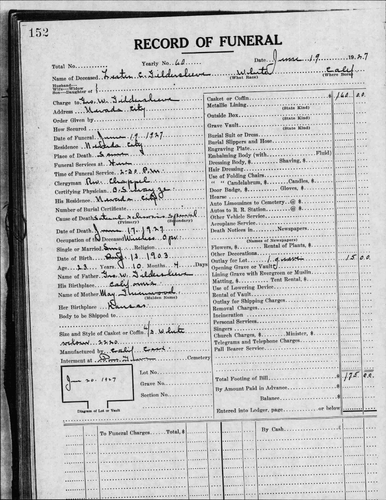 152
RECORD OF FUNERAL
Total No. Yearly No. 60 Date June 19 1927
Name of Deceased Lester C. Gildersleeve White Calif
(What Race) (Where Born)
Husband
Wife—Widow of
Son—Daughter
Charge to Geo. W. Gildersleeve
Address Nevada City
Order Given by
How Secured
Date of Funeral June 19 1927
Residence Nevada City
Place of Death
Funeral Services at
Time of Funeral Service 2:00 P.M
Clergyman Rev. Chappell
Certifying Physician
His Residence Nevada City
Number of Burial Certificate
Cause of Death
(Primary)
Date of Death June 17 1927
Occupation of the Deceased Wireless Opr.
Single or Married Religion
Date of Birth Aug 13 1903
Age 23 Years 10 Months 4 Days
Name of Father Geo W. Gildersleeve
His Birthplace California
Name of Mother May
(Maiden Name)
Her Birthplace
Body to be Shipped to
Size and Style of Casket or Coffin 6/3 White
2220
Manufactured by Calif
Interment at Cemetery
Lot No.
Grave No.
Section No.
June 20. 1927
Diagram of Lot or Vault
Casket or Coffin $ 160 00
Metallic Lining
(State Kind)
Outside Box
(State Kind)
Grave Vault
(State Kind)
Burial Suit or Dress
Burial Slippers and Hose
Engraving Plate
Embalming Body (with Fluid)
Dressing Body, $ Shaving, $
Hair Dressing
Use of Folding Chairs
" " Candelabrum, $ Candles, $
Door Badge, $ Gloves, $
Hearse
Auto Limousines to Cemetery @ $
Autos to R. R. Station @ $
Other Vehicle Service
Aeroplane Service
Death Notices in Newspapers
(Names of Newspapers)
Flowers, $ Rental of Plants, $
Other Decorations
Outlay for Lot 1 grave 15 00
Opening Grave or Vault
Lining Grave with Evergreen or Muslin
Matting, $ Tent Rental, $
Use of Lowering Device
Rental of Vault
Outlay for Shipping Charges
Removal Charges
Incineration
Personal Services
Singers
Church Charges, $ Minister, $
Telegrams and Telephone Charges
Pall Bearer Service
Total Footing of Bill $ 175 00
By Amount Paid in Advance
Balance $
Entered into Ledger, page or below
To Funeral Charges Total, $
By Cash $